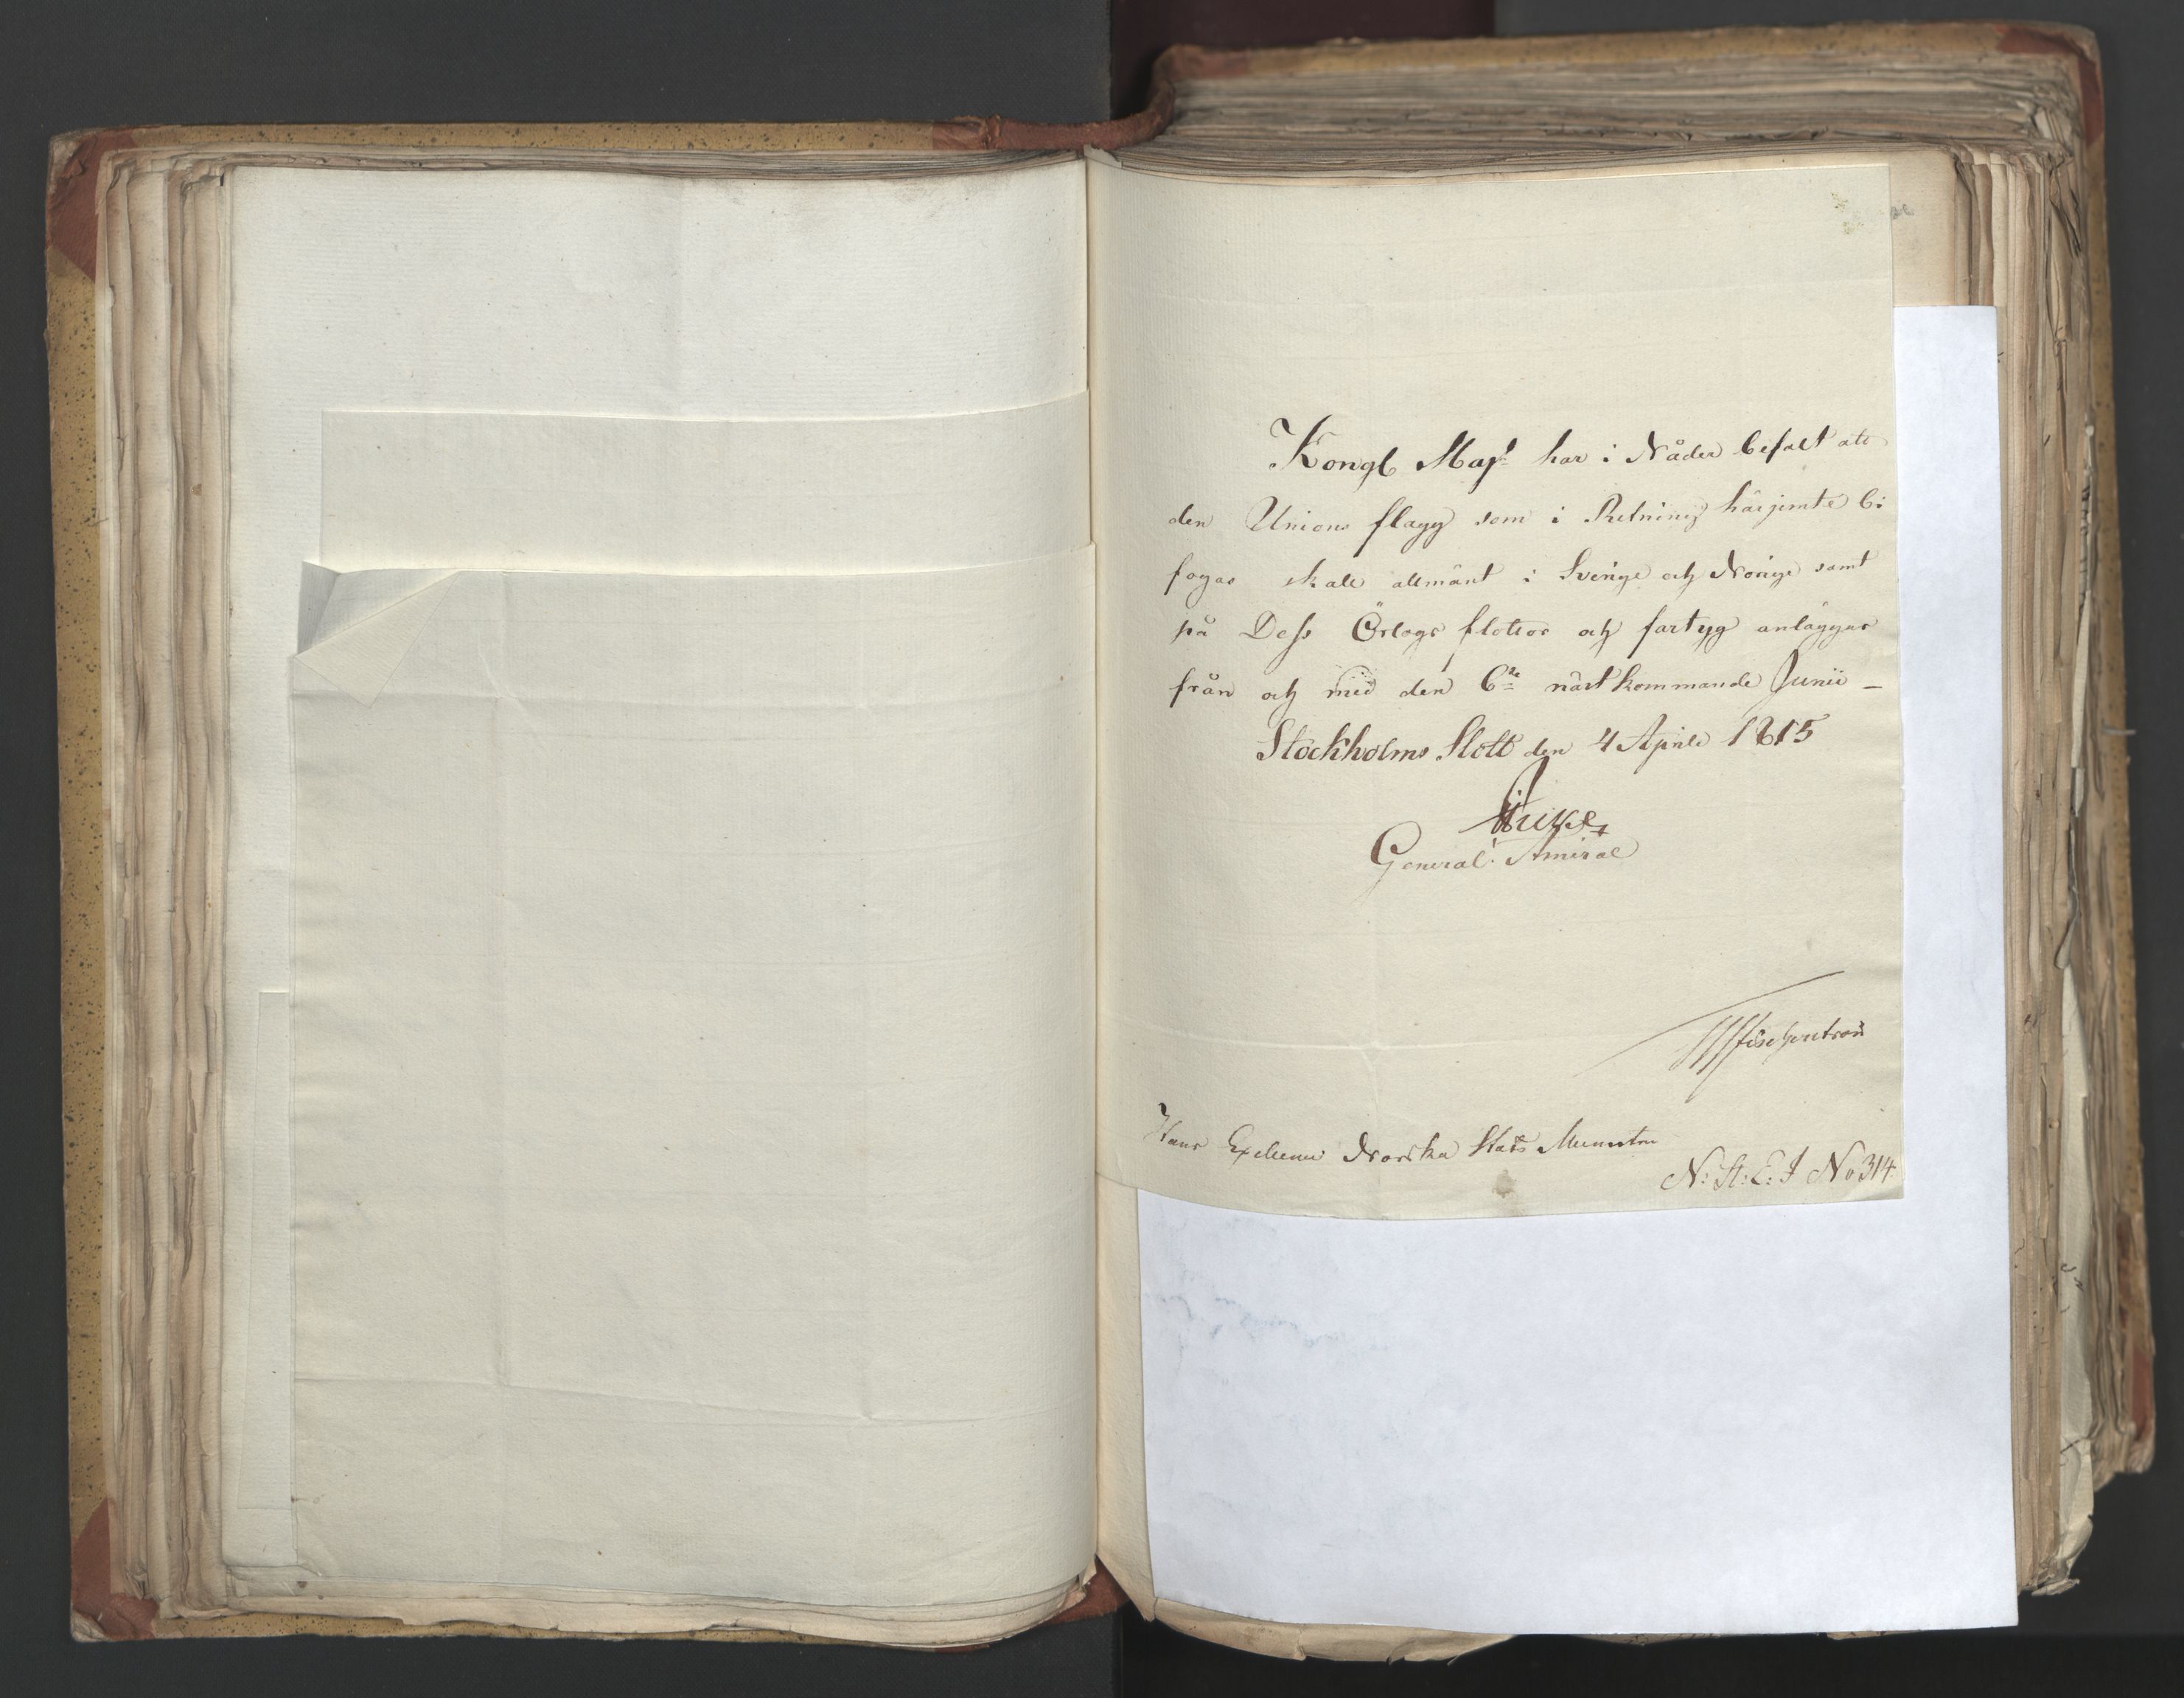 Kongl Maj:t har i Nåder befalt att
den Unions flagg som i Ritning härjemte bi
fogas skall allmänt i Sverige och Norige samt
på Dess Örlogs flottor och fartyg anläggas
från och med den 6te nästkommande Junii –
Stockholms Slott den 4 Aprill 1815
General. Amiral
Hans Excellence Norska Stats Ministern
N: St: E: J No 314.